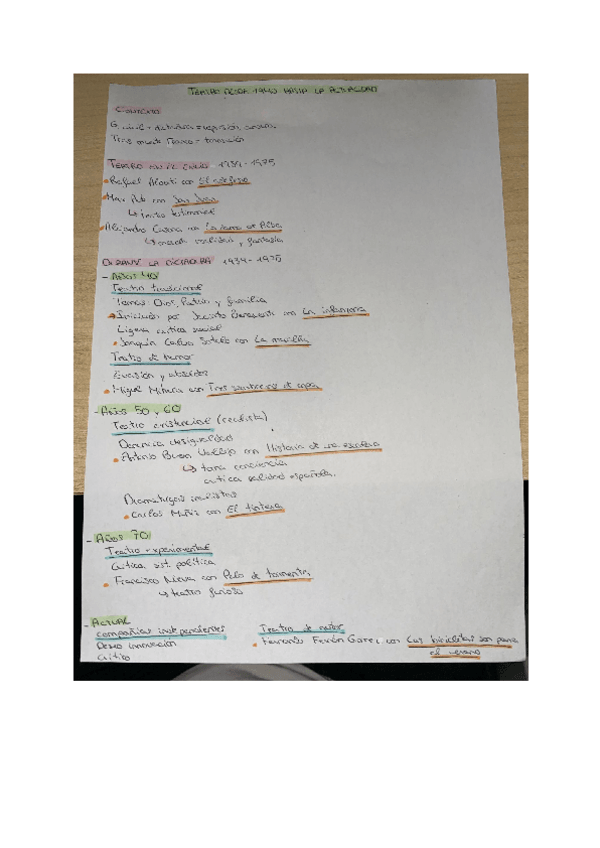 TEATRO DESDE 1940 HASTA LA ACTUALIDAD
CONTEXTO
G. civil + dictadura = represión, censura.
Tras muerte Franco = transición
TEATRO EN EL EXILIO 1939-1975
Rafael Alberti con El adefesio
Max Aub con San Juan
↳ teatro testimonial
Alejandro Casona con La dama de Alba
↳ realidad y fantasía
DURANTE LA DICTADURA 1939-1975
- AÑOS 40
Teatro tradicional
Temas Dios, Patria y familia
Iniciado por Jacinto Benavente con La infanzona
Ligera crítica social
Joaquín Calvo Sotelo con La muralla
Teatro de humor
Evasión y absurdo
Miguel Mihura con Tres sombreros de copa
- AÑOS 50 y 60
Teatro existencial (realista)
Denuncia desigualdad
Antonio Buero Vallejo con Historia de una escalera
↳ toma conciencia
crítica realidad española.
Dramaturgos realistas
Carlos Muñiz con El tintero
- AÑOS 70
Teatro experimental
Crítica sist. política
Francisco Nieva con Pelo de tormenta
↳ teatro furioso
- ACTUAL
compañías independientes
Deseo innovación
crítico
Teatro de autor
Fernando Fernán Gómez con Las bicicletas son para
el verano